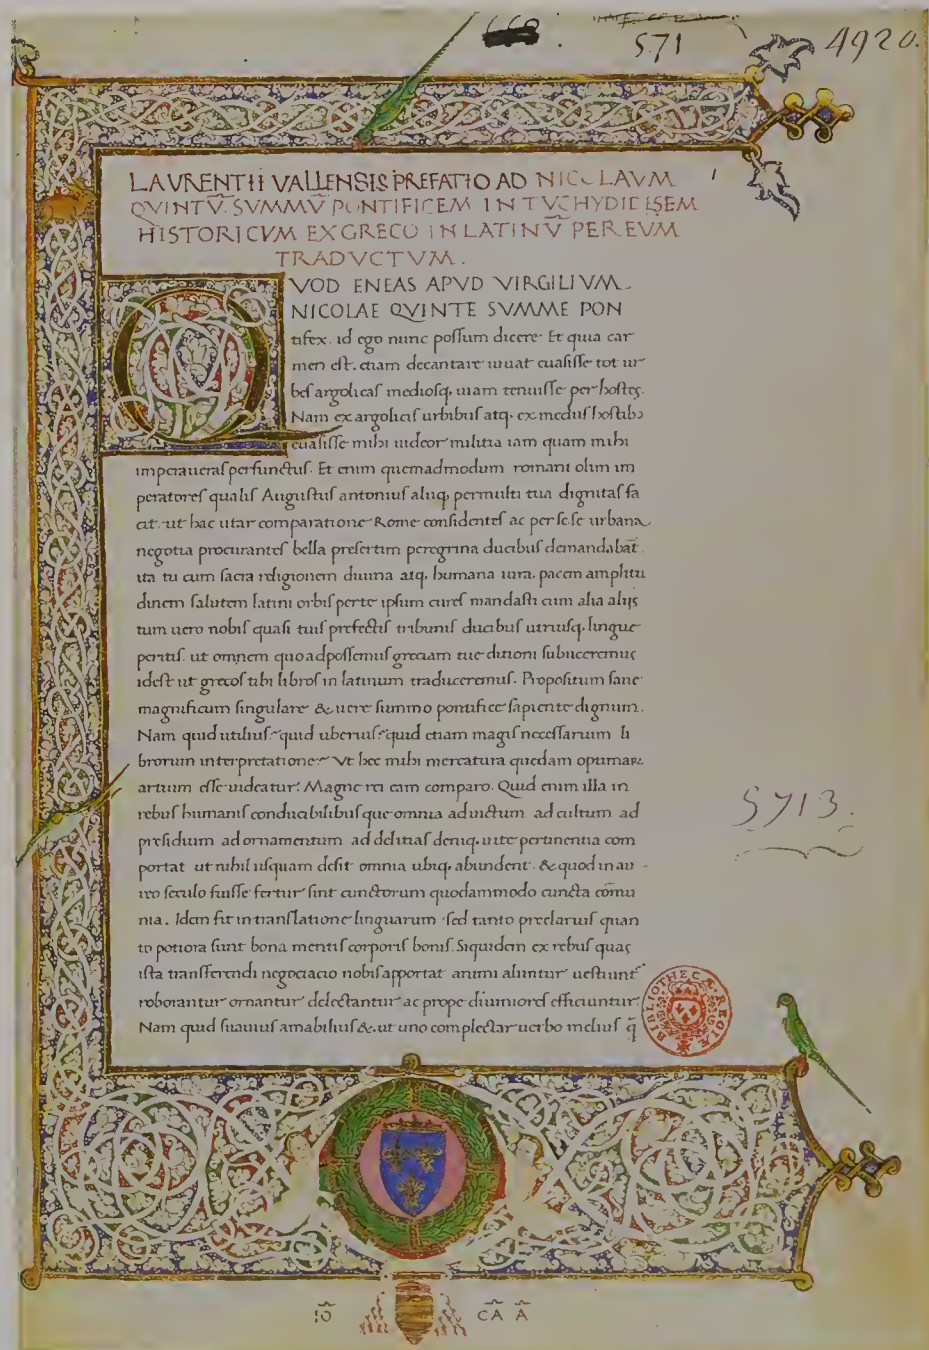 571
4920.
LAVRENTII VALLENSIS PREFATIO AD NICOLAVM
QVINTV̄. SVMMV̄ PONTIFICEM IN TVCHYDIDISEM
HISTORICVM EX GRECO IN LATINV̄ PER EVM
TRADVCTVM.
QVOD ENEAS APVD VIRGILIVM
NICOLAE QVINTE SVMME PON
tifex. id ego nunc possum dicere. Et quia car
men est. etiam decantare iuuat euasisse tot ur
bes argolicas mediosq. uiam tenuisse per hostes.
Nam ex argolicis urbibus atq. ex mediis hostib;
euasisse mihi uideor militia iam quam mihi
imperaueras perfunctus. Et enim quemadmodum romani olim im
peratores qualis Augustus antonius aliiq. permulti tua dignitas fa
cit. ut hac utar comparatione Rome considentes ac per se se urbana
negotia procurantes bella presertim peregrina ducibus demandabāt.
ita tu cum sacra religionem diuina atq. humana iura. pacem amplitu
dinem salutem latini orbis per te ipsum cures mandasti cum alia aliis
tum uero nobis quasi tuis prefectis tribunis ducibus utriusq. lingue
peritis. ut omnem quoad possemus greciam tue ditioni subiiceremus
idest ut grecos tibi libros in latinum traduceremus. Propositum sane
magnificum singulare & uere summo pontifice sapiente dignum.
Nam quid utilius? quid uberius? quid etiam magis necessarium li
brorum interpretatione? Vt hec mihi mercatura quedam optimarum
artium esse uideatur. Magne rei eam comparo. Quid enim illa in
rebus humanis conducibilius que omnia ad uictum ad cultum ad
presidium ad ornamentum ad delitias deniq. uite pertinentia com
portat ut nihil usquam desit omnia ubiq. abundent. & quod in au-
reo seculo fuisse fertur sint cunctorum quodammodo cuncta cōmu
nia. Idem fit in translatione linguarum sed tanto preclarius quan
to potiora sunt bona mentis corporis bonis. Siquidem ex rebus quas
ista transferendi negociacio nobis apportat animi aluntur uestiunt͛
roborantur ornantur delectantur ac prope diuiniores efficiuntur.
Nam quid suauius amabilius & ut uno complectar uerbo melius q̄
5713.
BIBLIOTHECÆ REGIÆ
IŌ CĀ Ā